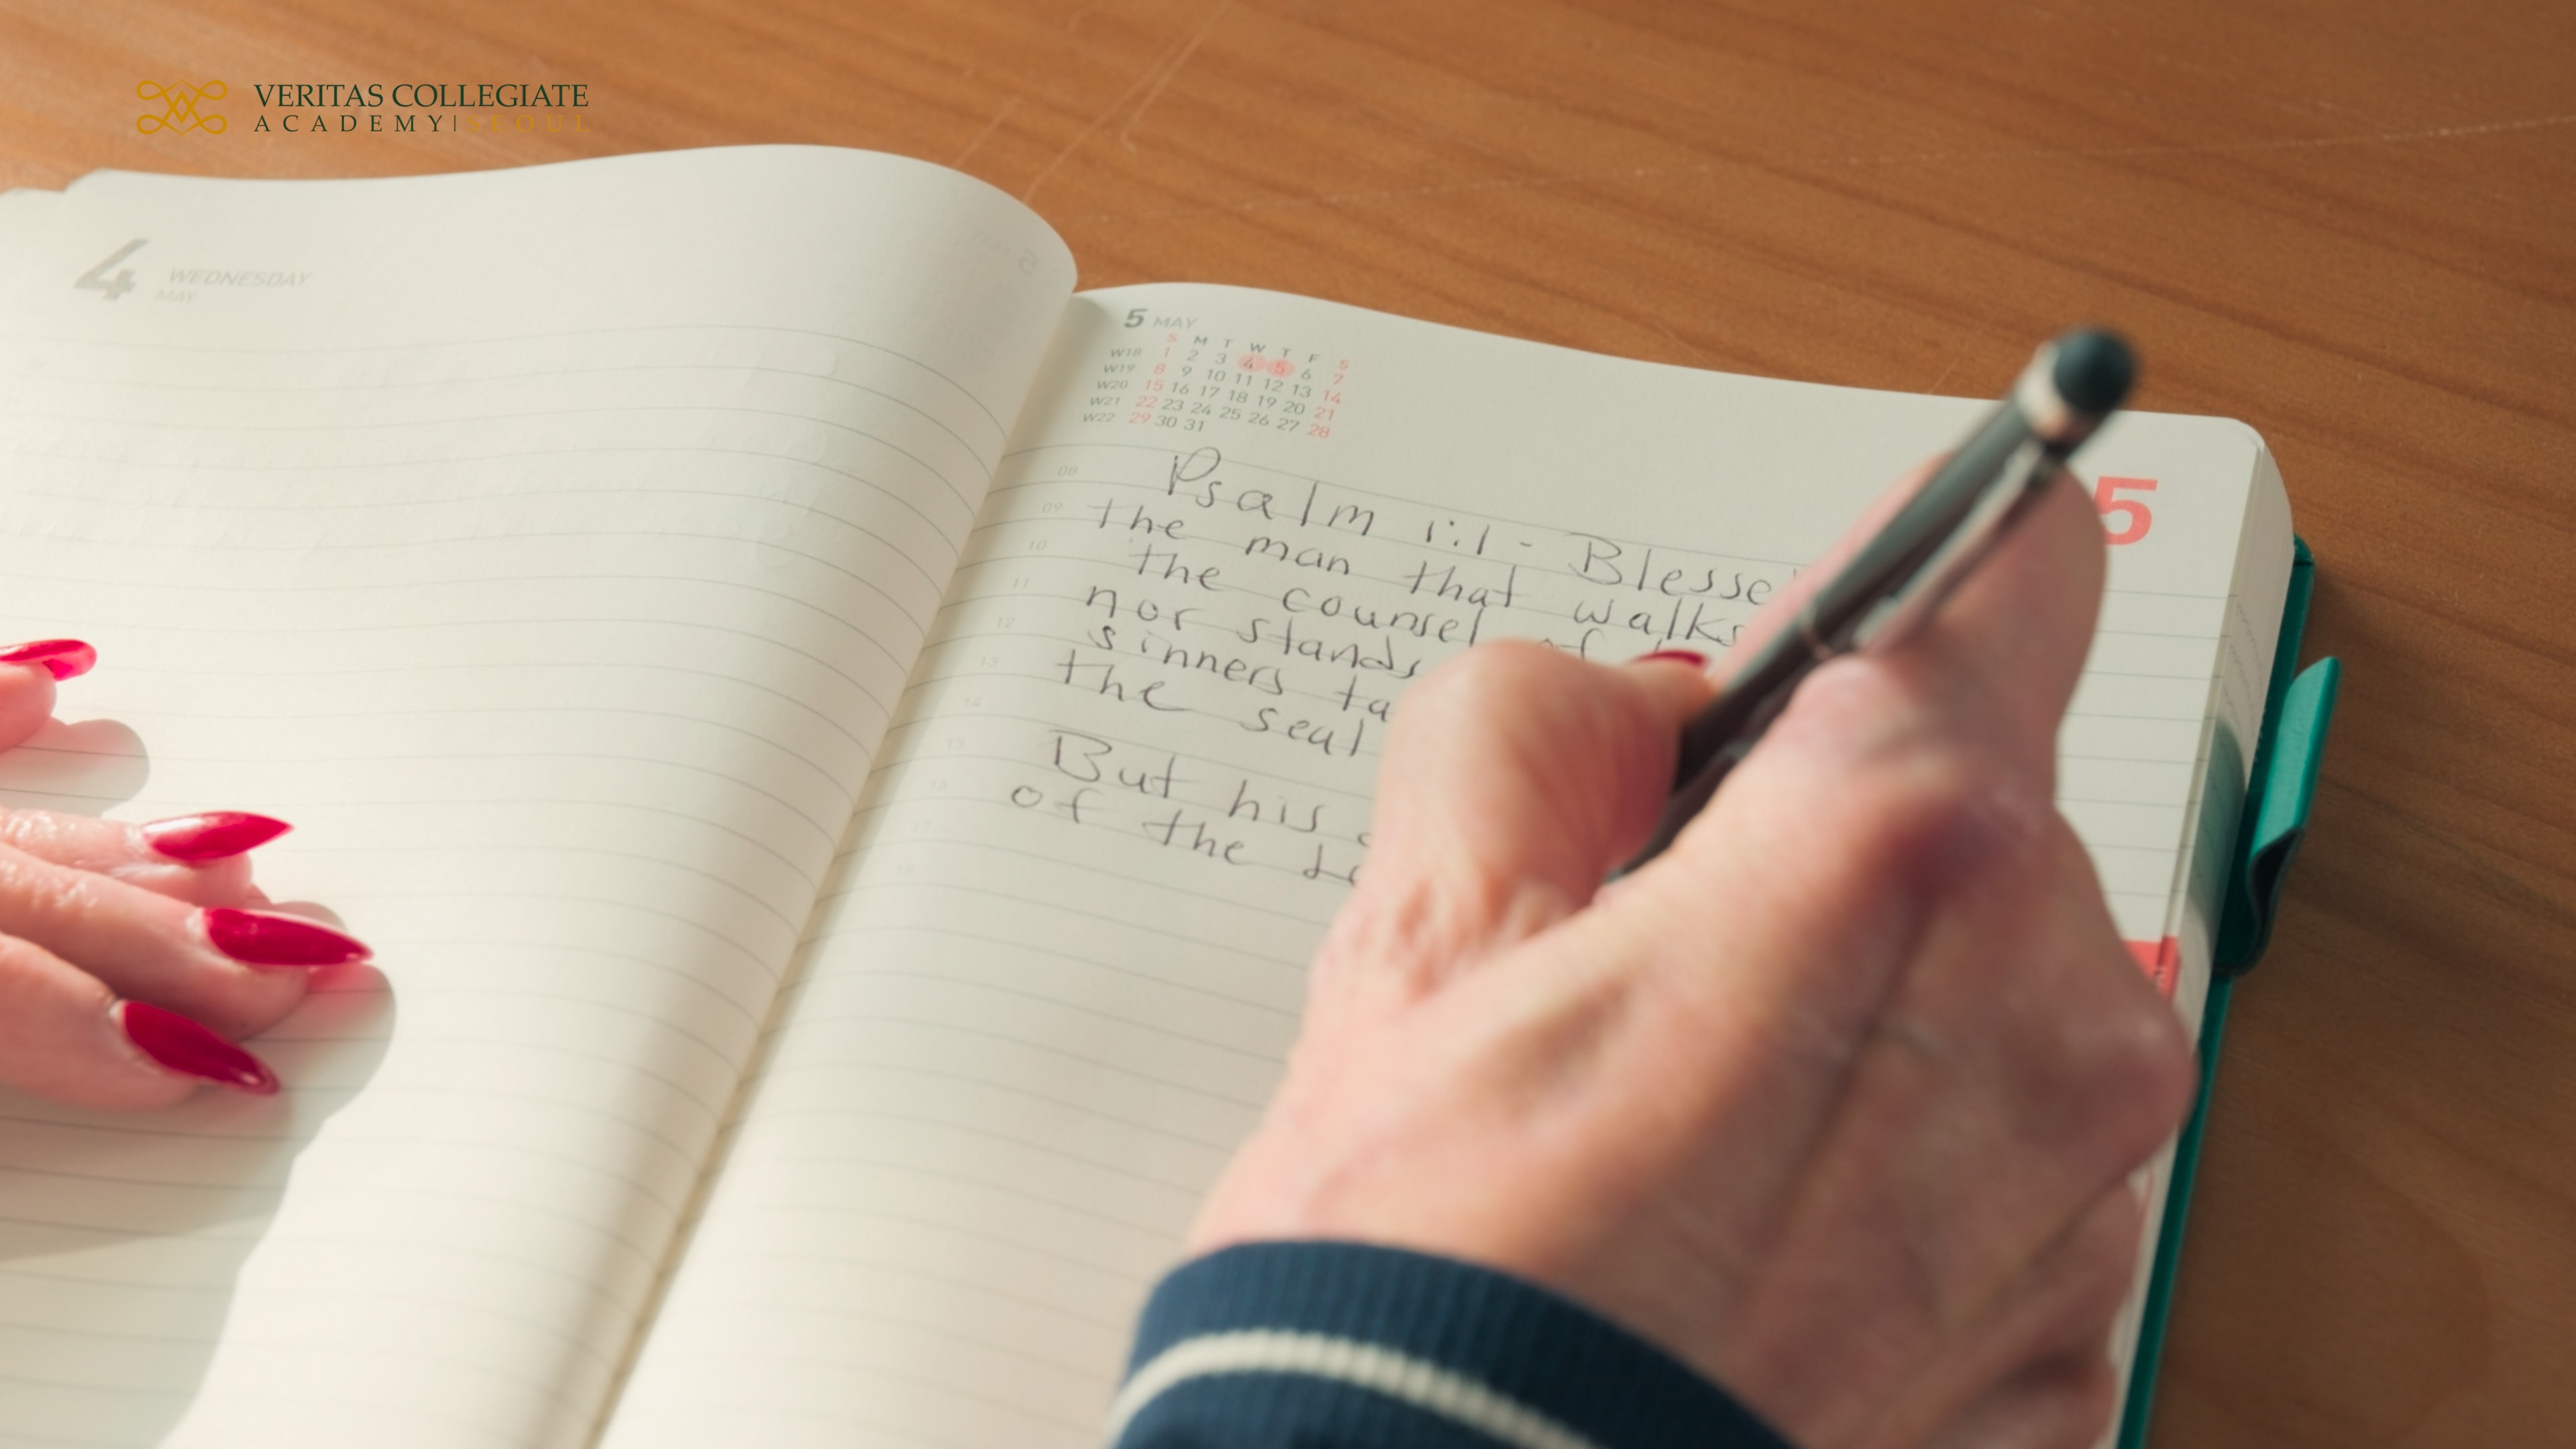 VERITAS COLLEGIATE
ACADEMY | SEOUL
4 WEDNESDAY
MAY
5 MAY
S M T W T F S
W18 1 2 3 4 5 6 7
W19 8 9 10 11 12 13 14
W20 15 16 17 18 19 20 21
W21 22 23 24 25 26 27 28
W22 29 30 31
5
08
09
10
11
12
13
14
15
16
17
18
Psalm 1:1 - Blesse
the man that walks
the counsel of
nor stands
sinners ta
the seat
But his
of the